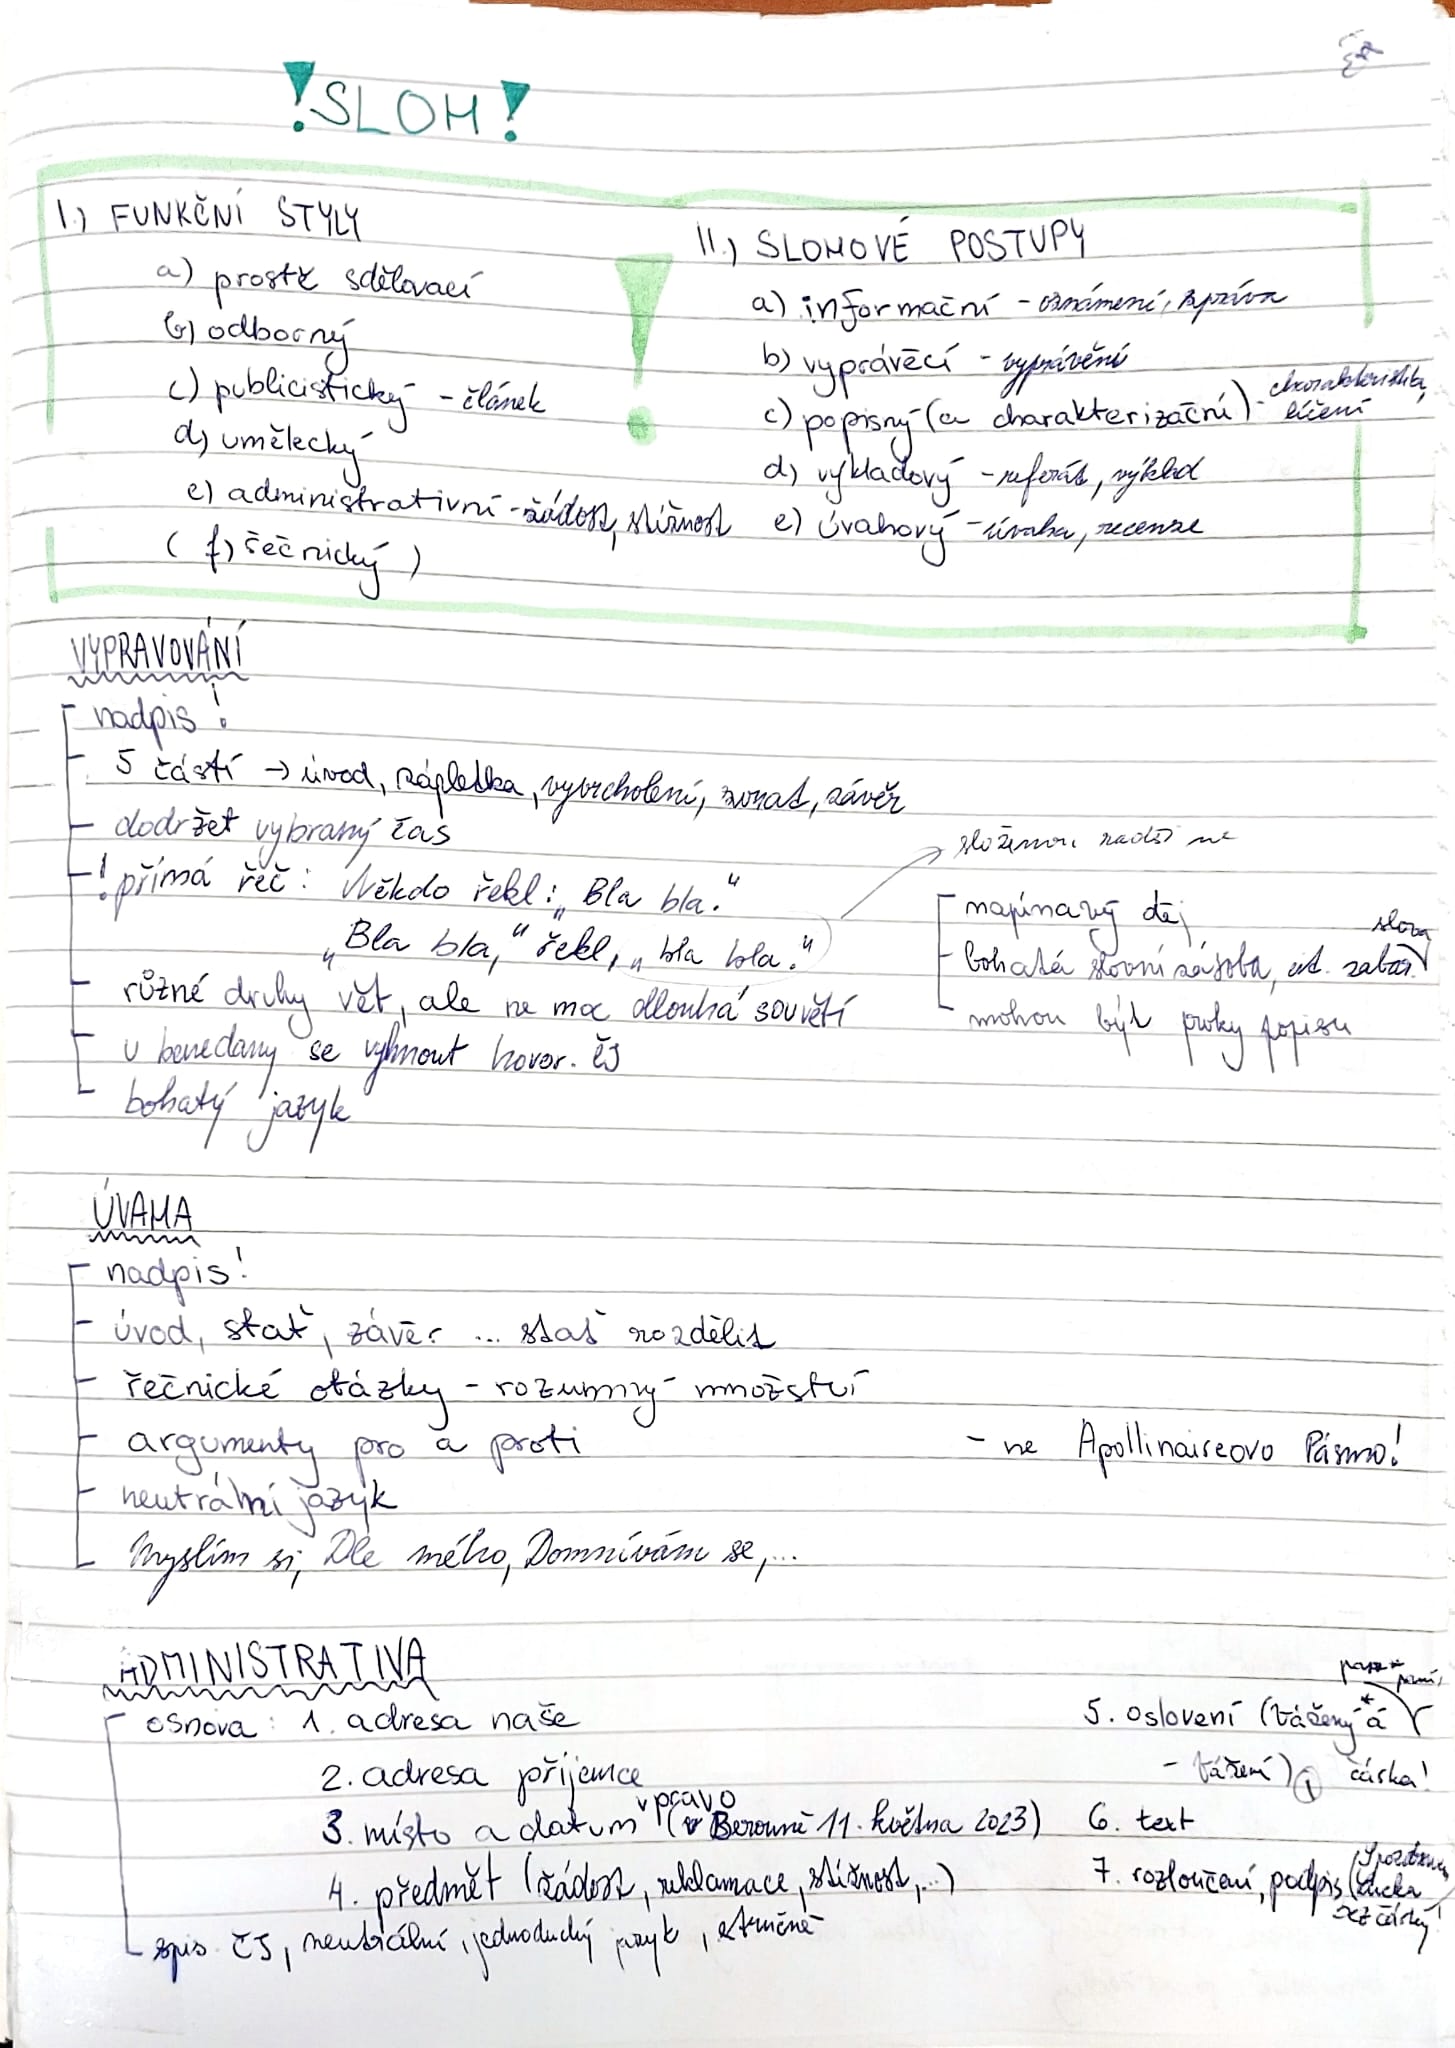 ! SLOH !
I.) FUNKČNÍ STYLY
a) prostě sdělovací
b) odborný
c) publicistický - článek
d) umělecký
e) administrativní - žádost, stížnost
( f) řečnický )
II.) SLOHOVÉ POSTUPY
a) informační - oznámení, zpráva
b) vyprávěcí - vyprávění
c) popisný (a charakterizační) - charakteristika, líčení
d) výkladový - referát, výklad
e) úvahový - úvaha, recenze
VYPRAVOVÁNÍ
- nadpis!
- 5 částí → úvod, zápletka, vyvrcholení, zvrat, závěr
- dodržet vybraný čas
- ! přímá řeč: Někdo řekl: „Bla bla."
„Bla bla," řekl, „bla bla."
složenou radši ne
- různé druhy vět, ale ne moc dlouhá souvětí
- u benedany se vyhnout hovor. ČJ
- bohatý jazyk
- napínavý děj
- bohatá slovní zásoba, cit. zabar. slova
- mohou být prvky popisu
ÚVAHA
- nadpis!
- úvod, stať, závěr ... stať rozdělit
- řečnické otázky - rozumný množství
- argumenty pro a proti
- neutrální jazyk
- Myslím si, Dle mého, Domnívám se,...
- ne Apollinaireovo Pásmo!
ADMINISTRATIVA
- osnova: 1. adresa naše
2. adresa příjemce
3. místo a datum vpravo (v Berouně 11. května 2023)
4. předmět (žádost, reklamace, stížnost,...)
5. oslovení (Vážený*á
- Vážení) ① čárka!
6. text
7. rozloučení, podpis (S pozdravem
bez čárky!
- spis. ČJ, neutrální, jednoduchý jazyk, stručně